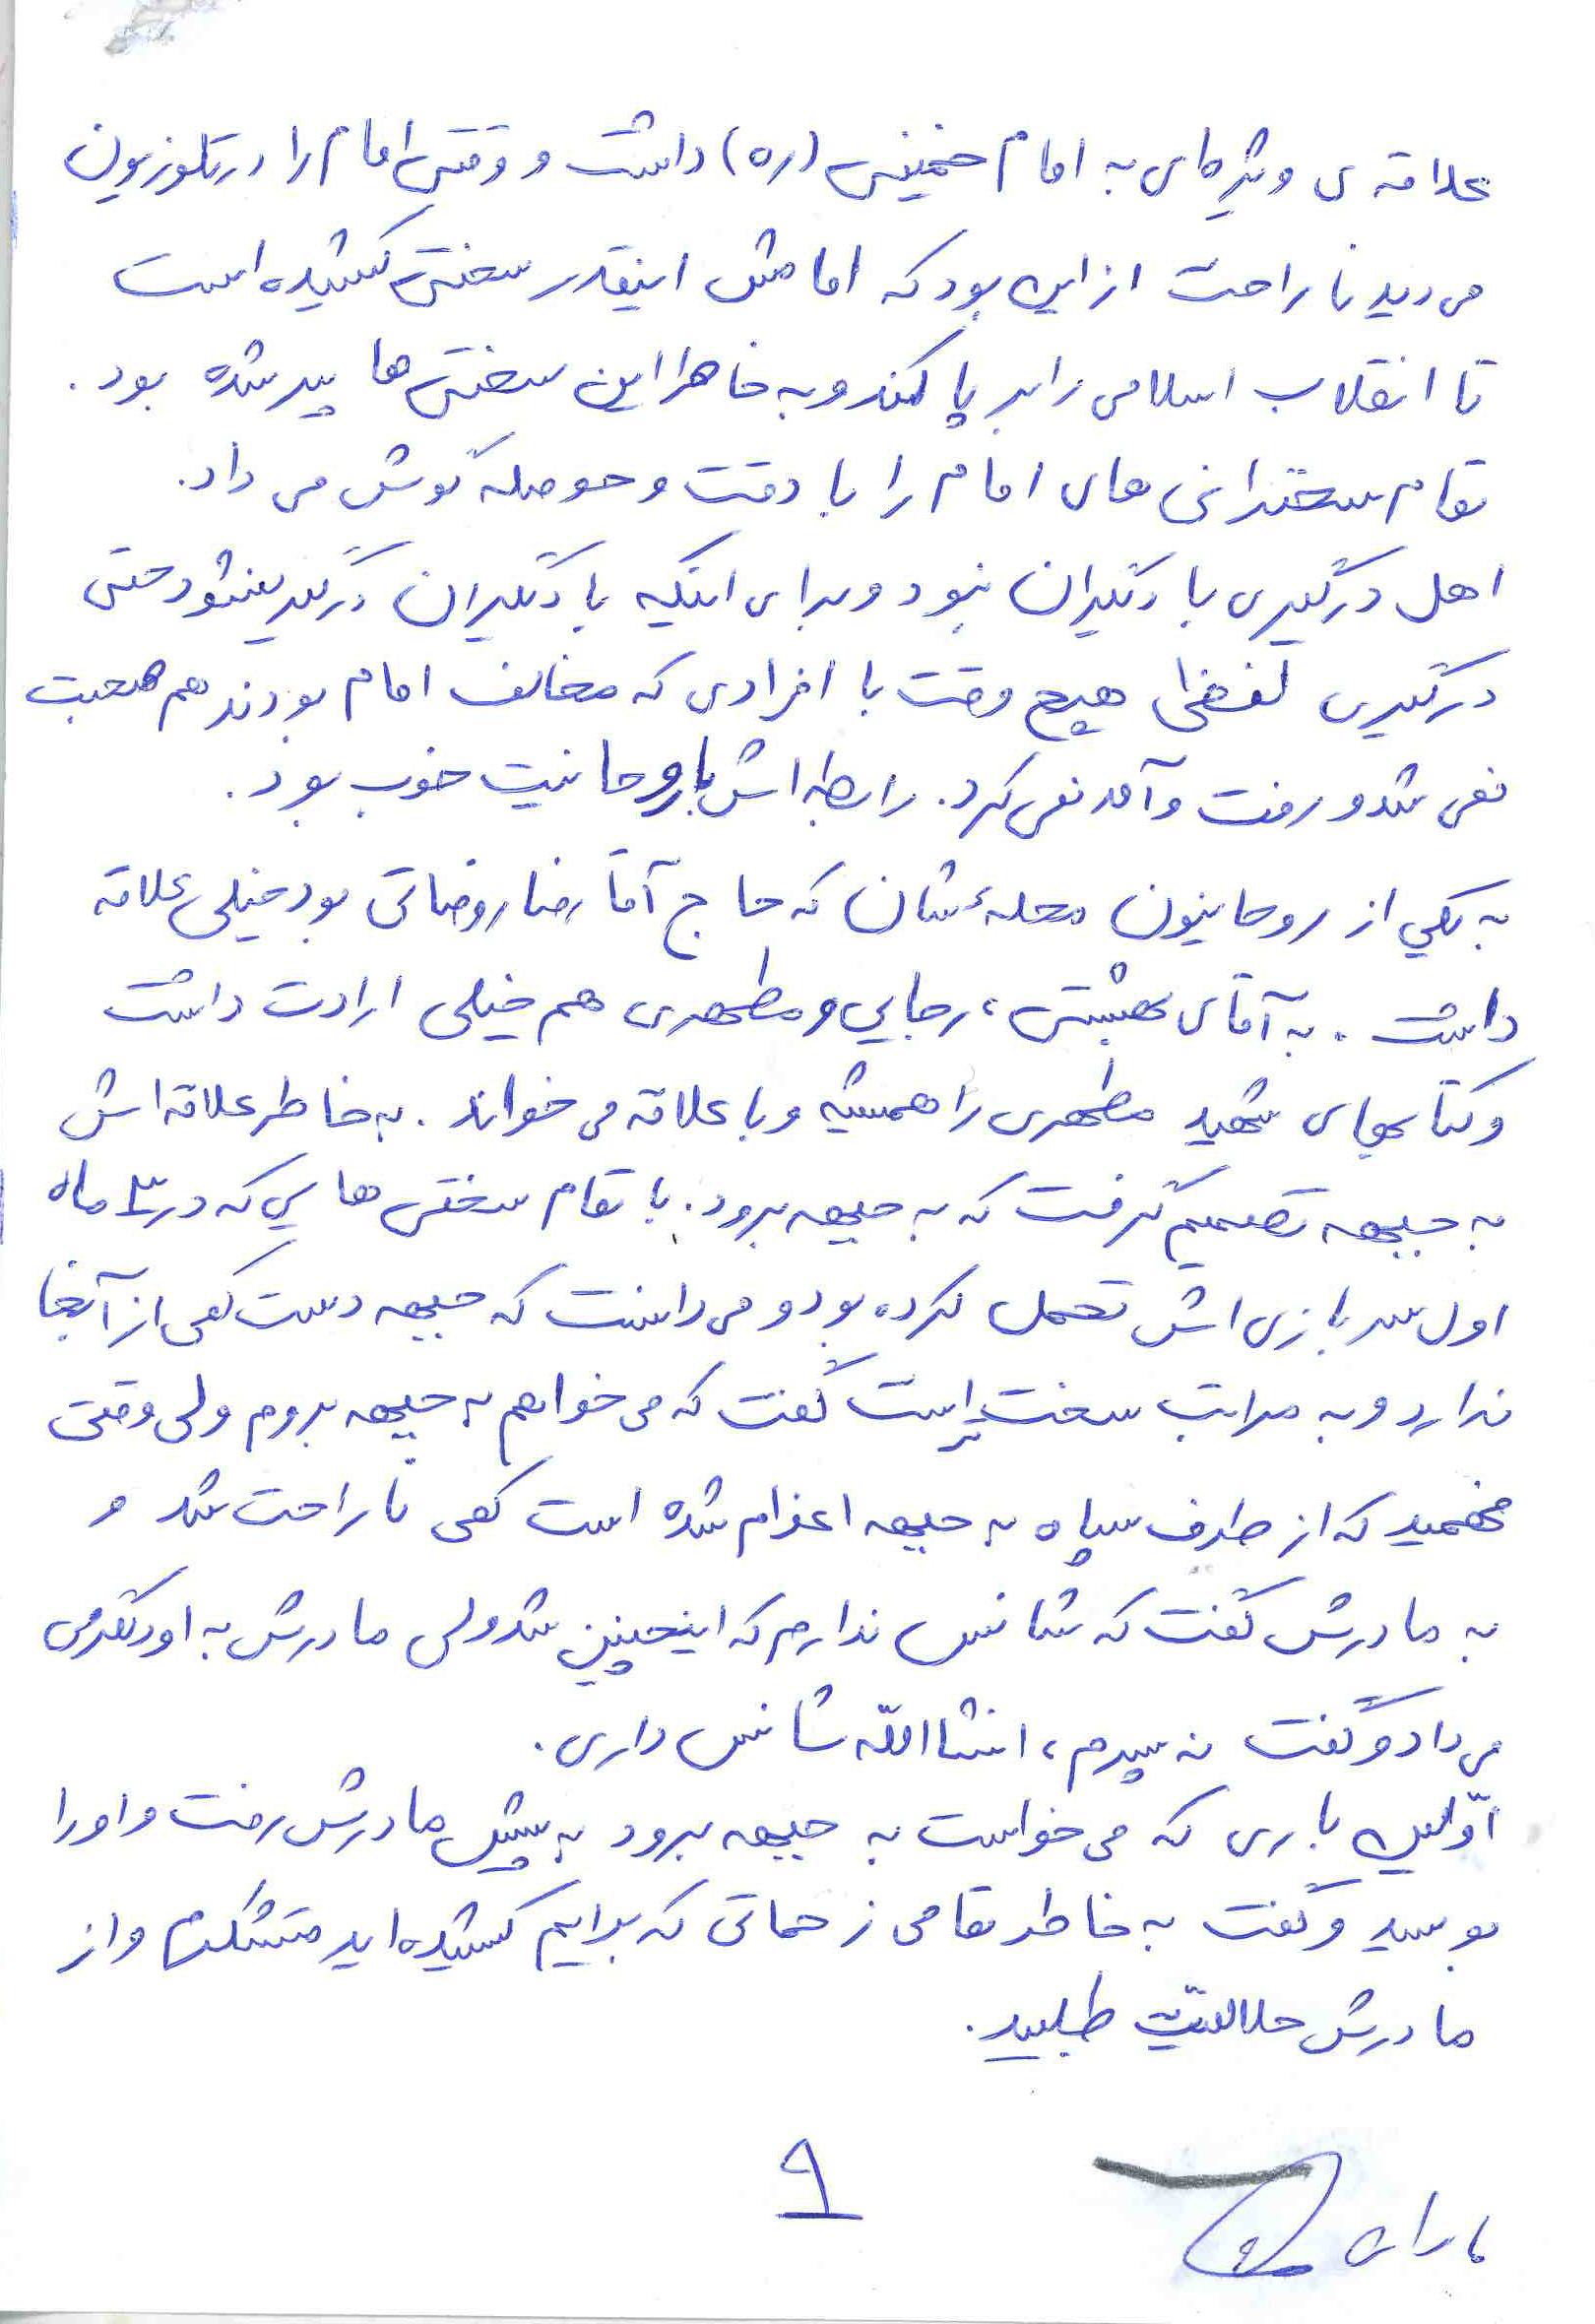 علاقه ی ویژه‌ای به امام خمینی (ره) داشت و وقتی امام را در تلوزیون
می دید ناراحت از این بود که امامش اینقدر سختی کشیده است
تا انقلاب اسلامی را بر پا کند و به خاطر این سختی ها پیر شده بود.
تمام سخنرانی های امام را با دقت و حوصله گوش می داد.
اهل درگیری با دیگران نبود و برای اینکه با دیگران درگیر نشود حتی
درگیری لفظی هیچ وقت با افرادی که مخالف امام بودند هم صحبت
نمی شد و رفت و آمد نمی کرد. رابطه اش با روحانیت خوب بود.
به یکی از روحانیون محلهٔ شان که حاج آقا رضا روضاتی بود خیلی علاقه
داشت. به آقای بهشتی، رجایی و مطهری هم خیلی ارادت داشت
و کتابهای شهید مطهری را همیشه و با علاقه می خواند. به خاطر علاقه اش
به جبهه تصمیم گرفت که به جبهه برود. با تمام سختی هایی که در ۳ ماه
اول سربازی اش تحمل کرده بود و می دانست که جبهه دست کمی از آنجا
ندارد و به مراتب سخت تر است گفت که می خواهم به جبهه بروم ولی وقتی
فهمید که از طرف سپاه به جبهه اعزام شده است کمی ناراحت شد و
به مادرش گفت که شانس ندارم که اینچنین شد ولی مادرش به او دلگرمی
می داد و گفت نه پسرم، انشاالله شانس داری.
اوّلین باری که می خواست به جبهه برود به پیش مادرش رفت و او را
بوسید و گفت به خاطر تمامی زحماتی که برایم کشیده اید متشکرم و از
مادرش حلالیّت طلبید.
۹